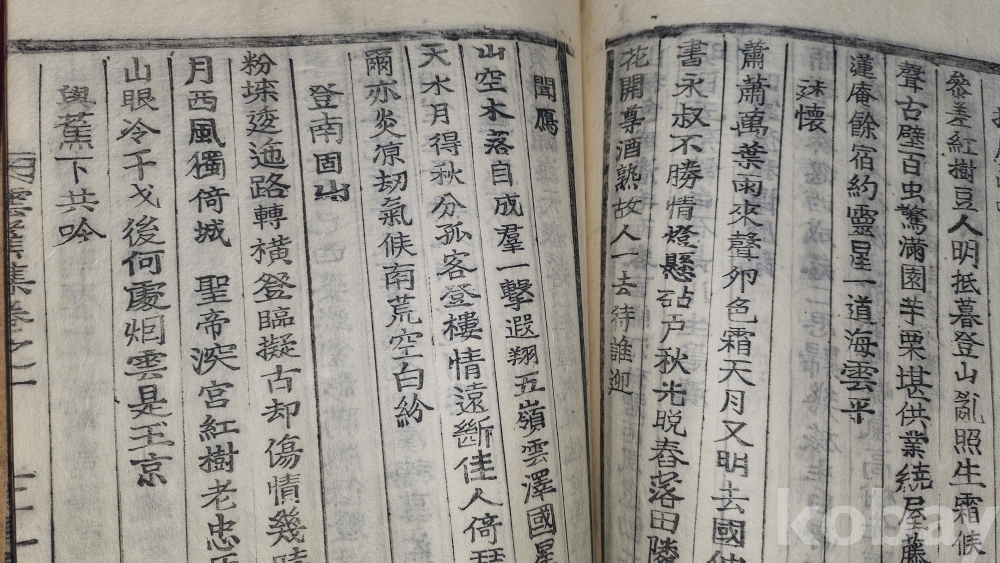 叅差紅樹豆人明抵暮登山亂照生霜候
聲古壁百虫驚滿園芋栗堪供業繞屋藤
蓮庵餘宿約靈星一道海雲平
述懷
蕭蕭萬葉雨來聲卯色霜天月又明去國
書永叔不勝情燈懸砧户秋光晩舂落田隣
花開尊酒熟故人一去待誰迎
聞鴈
山空木落自成羣一擊遐翔五嶺雲澤國星
天水月得秋分孤客登樓情遠斷佳人倚
爾亦炎凉劫氣候南荒空白紛
登南固山
粉堞逶迤路轉橫登臨擬古却傷情幾
月西風獨倚城 聖帝深宮紅樹老忠
山眼冷干戈後何處烟雲是玉京
與蕉下共吟
雲 集卷之一
kobay